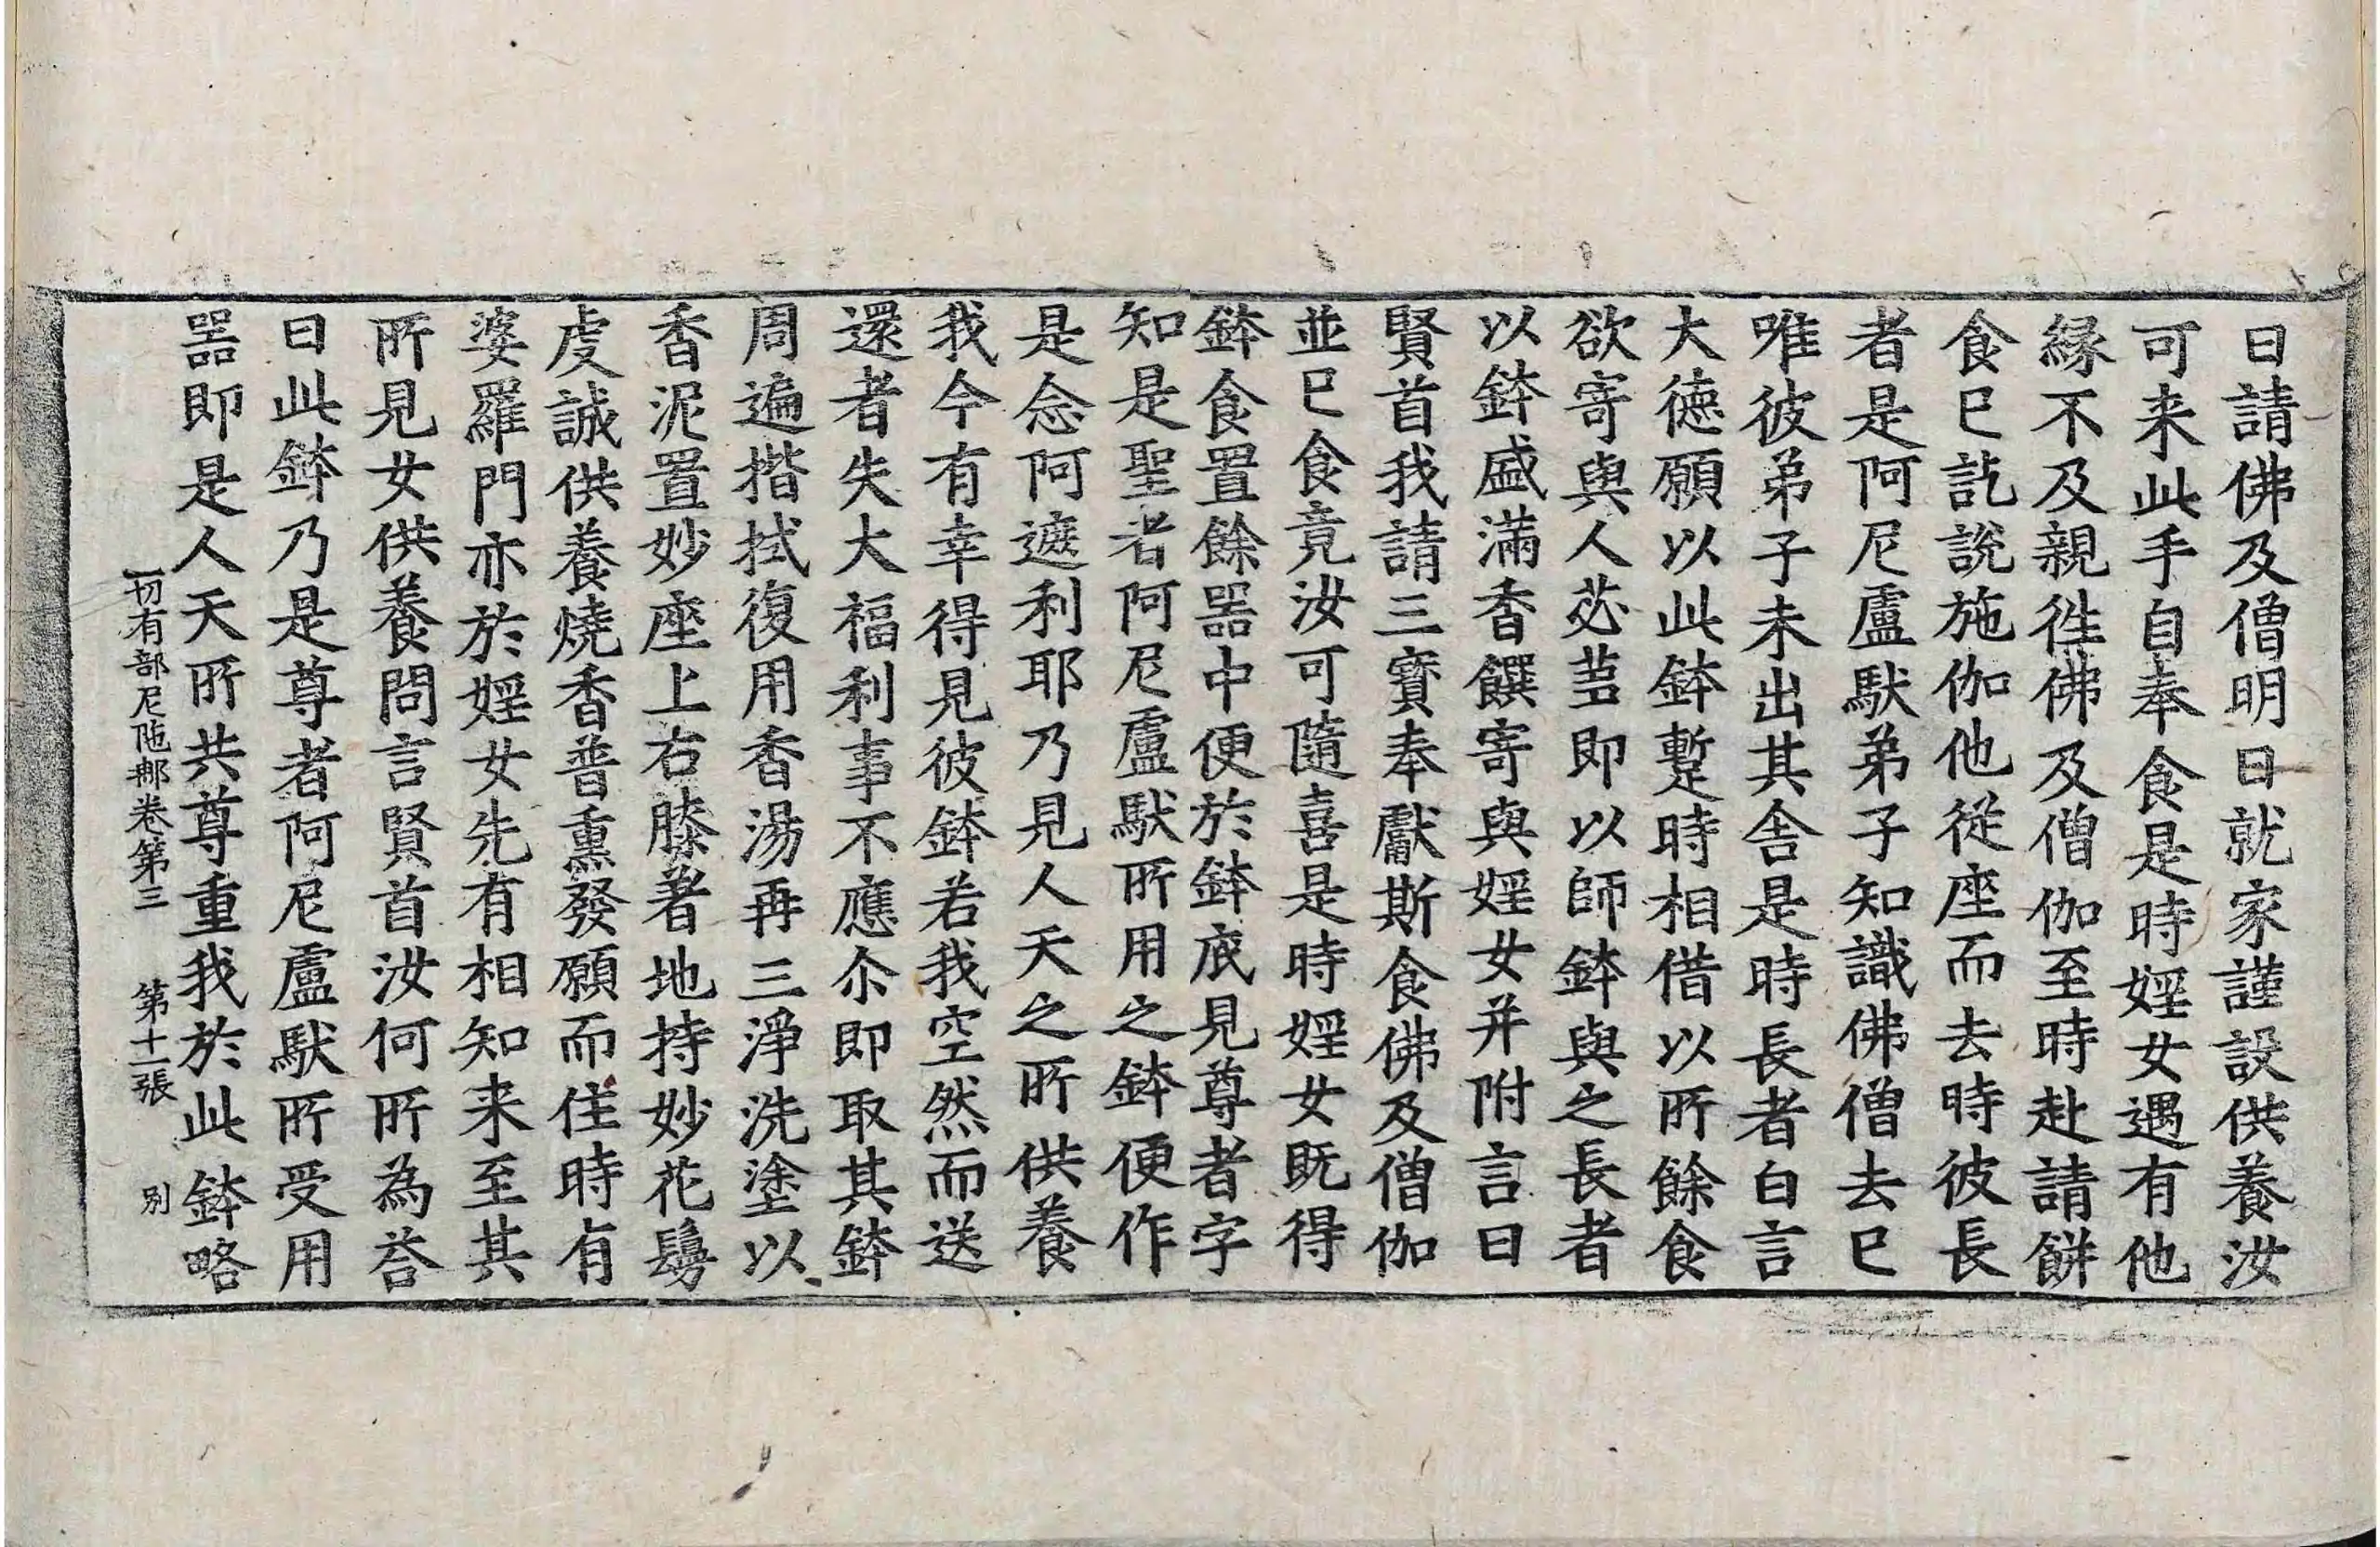 日請佛及僧明日就家謹設供養汝
可来此手自奉食是時婬女遇有他
縁不及親徃佛及僧伽至時赴請餅
食已訖說施伽他從座而去時彼長
者是阿尼盧䭾弟子知識佛僧去已
唯彼弟子未出其舍是時長者白言
大德願以此鉢蹔時相借以所餘食
欲寄與人苾蒭即以師鉢與之長者
以鉢盛滿香饌寄與婬女并附言曰
賢首我請三寶奉獻斯食佛及僧伽
並已食竟汝可隨喜是時婬女既得
鉢食置餘器中便於鉢底見尊者字
知是聖者阿尼盧䭾所用之鉢便作
是念阿遮利耶乃見人天之所供養
我今有幸得見彼鉢若我空然而送
還者失大福利事不應尒即取其鉢
周遍揩拭復用香湯再三淨洗塗以
香泥置妙座上右膝著地持妙花鬘
虔誠供養燒香普熏發願而住時有
婆羅門亦於婬女先有相知来至其
所見女供養問言賢首汝何所為荅
曰此鉢乃是尊者阿尼盧䭾所受用
器即是人天所共尊重我於此鉢略
一切有部尼陁那卷第三 第十二張 別